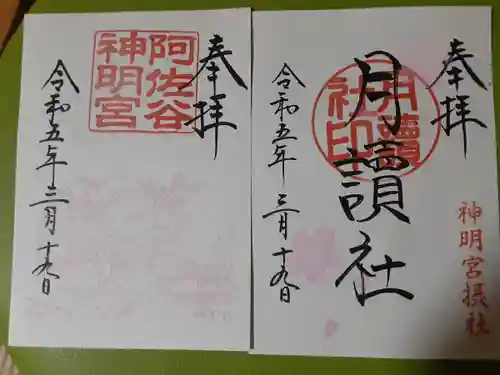 奉拝
阿佐谷
神明宮
令和五年三月十九日
奉拝
月讀社
月讀
社印
令和五年三月十九日
神明宮摂社